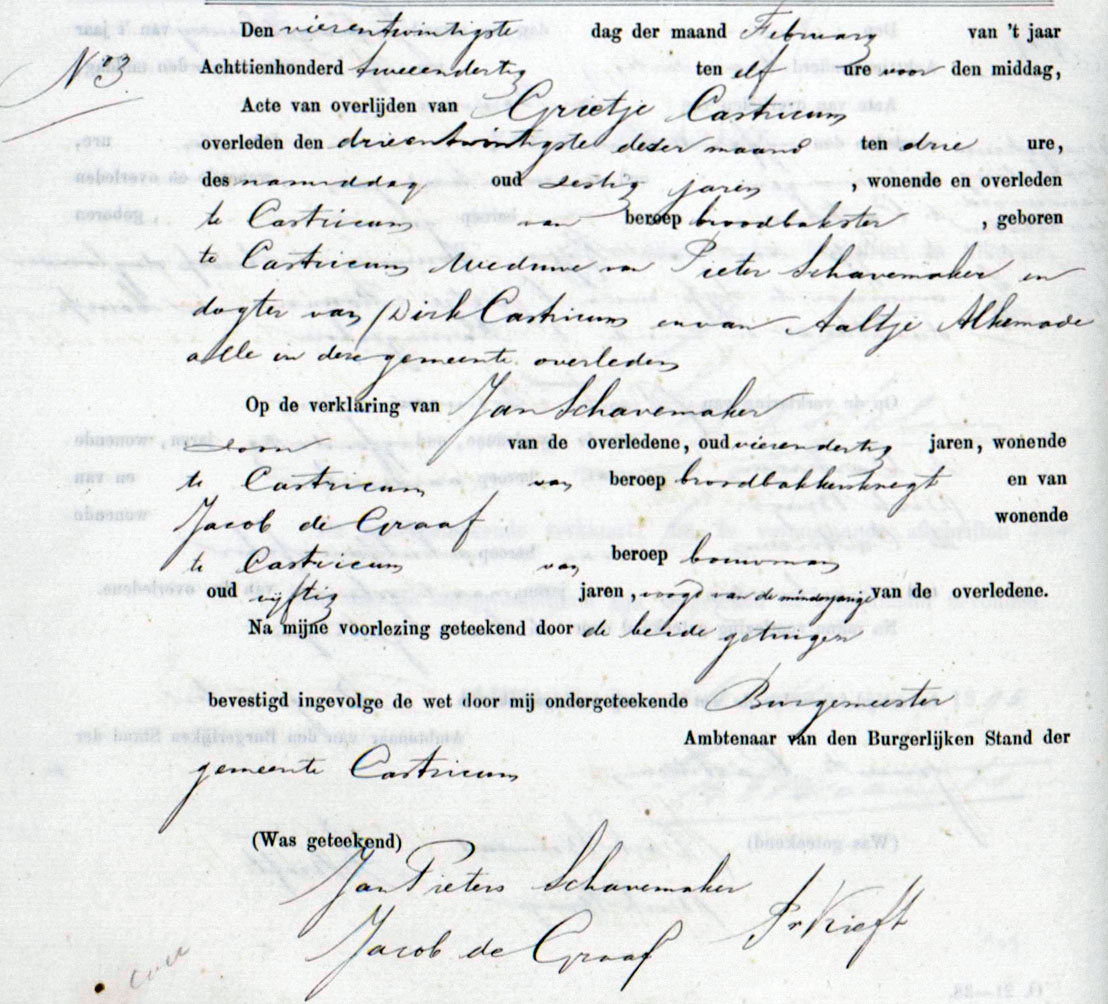 Den vierentwintigste dag der maand Februarij van 't jaar
No 3. Achttienhonderd tweeendertig ten elf ure voor den middag,
Acte van overlijden van Grietje Castricum
overleden den drieentwintigste dezer maand ten drie ure,
des namiddag oud sestig jaren , wonende en overleden
te Castricum van beroep broodbakster , geboren
te Castricum Weduwe van Pieter Schavemaker en
dogter van Dirk Castricum en van Aaltje Alkemade
alle in deze gemeente overleden
Op de verklaring van Jan Schavemaker
zoon van de overledene, oud vierendertig jaren, wonende
te Castricum van beroep broodbakkersknegt en van
Jacob de Graaf wonende
te Castricum van beroep bouwman
oud vijftig jaren, voogd van de minderjarige van de overledene.
Na mijne voorlezing geteekend door de beide getuigen
bevestigd ingevolge de wet door mij ondergeteekende Burgemeester
Ambtenaar van den Burgerlijken Stand der
gemeente Castricum
(Was geteekend)
Jan Pieters Schavemaker
Jacob de Graaf Pr Kieft